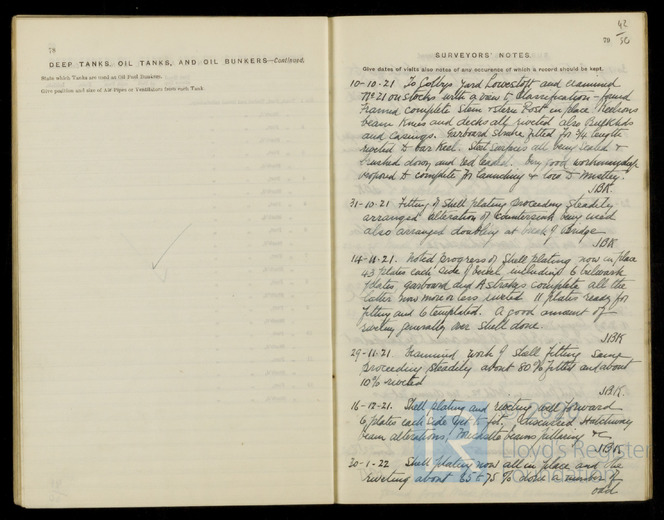 78
DEEP TANKS, OIL TANKS, AND OIL BUNKERS—Continued.
State which Tanks are used as Oil Fuel Bunkers.
Give position and size of Air Pipes or Ventilators from each Tank.
42
56
79
SURVEYORS' NOTES
Give dates of visits also notes of any occurrence of which a record should be kept.
10-10-21 To Colbys Yard Lowestoft and examined
No 21 on stocks with a view to classification - found
Framed complete Stem & Stern Post in place
beam Knees and decks all riveted also Bulkhds
and Casings. Garboard strake fitted for 3/4 length
riveted to bar keel. Steel surfaces all being scaled &
brushed down and red leaded. Very good workmanship
to complete for launching & tow to
JBK.
31-10-21 Fitting of shell plating proceeding steadily
arranged alteration of countersink being used
also arranged doubling at break of Bridge
JBK
14-11-21. Noted progress of shell plating now in place
43 plates each side of vessel including 6 bulwark
plates, garboard and A strakes complete all the
latter now more or less riveted 11 plates ready for
fitting and 6 templated. A good amount of
riveting generally over shell done.
JBK
29-11-21. Examined work of shell fitting same
proceeding steadily about 80% fitted and about
10% riveted
JBK.
16-12-21. Shell plating and riveting well forward
6 plates each side yet to fit. Discussed Hatchway
beam alterations, beams pillering &c
JBK
30-1-22 Shell plating now all in place and the
riveting about 65 to 75% done a number of
odd
Lloyd's Register
Foundation